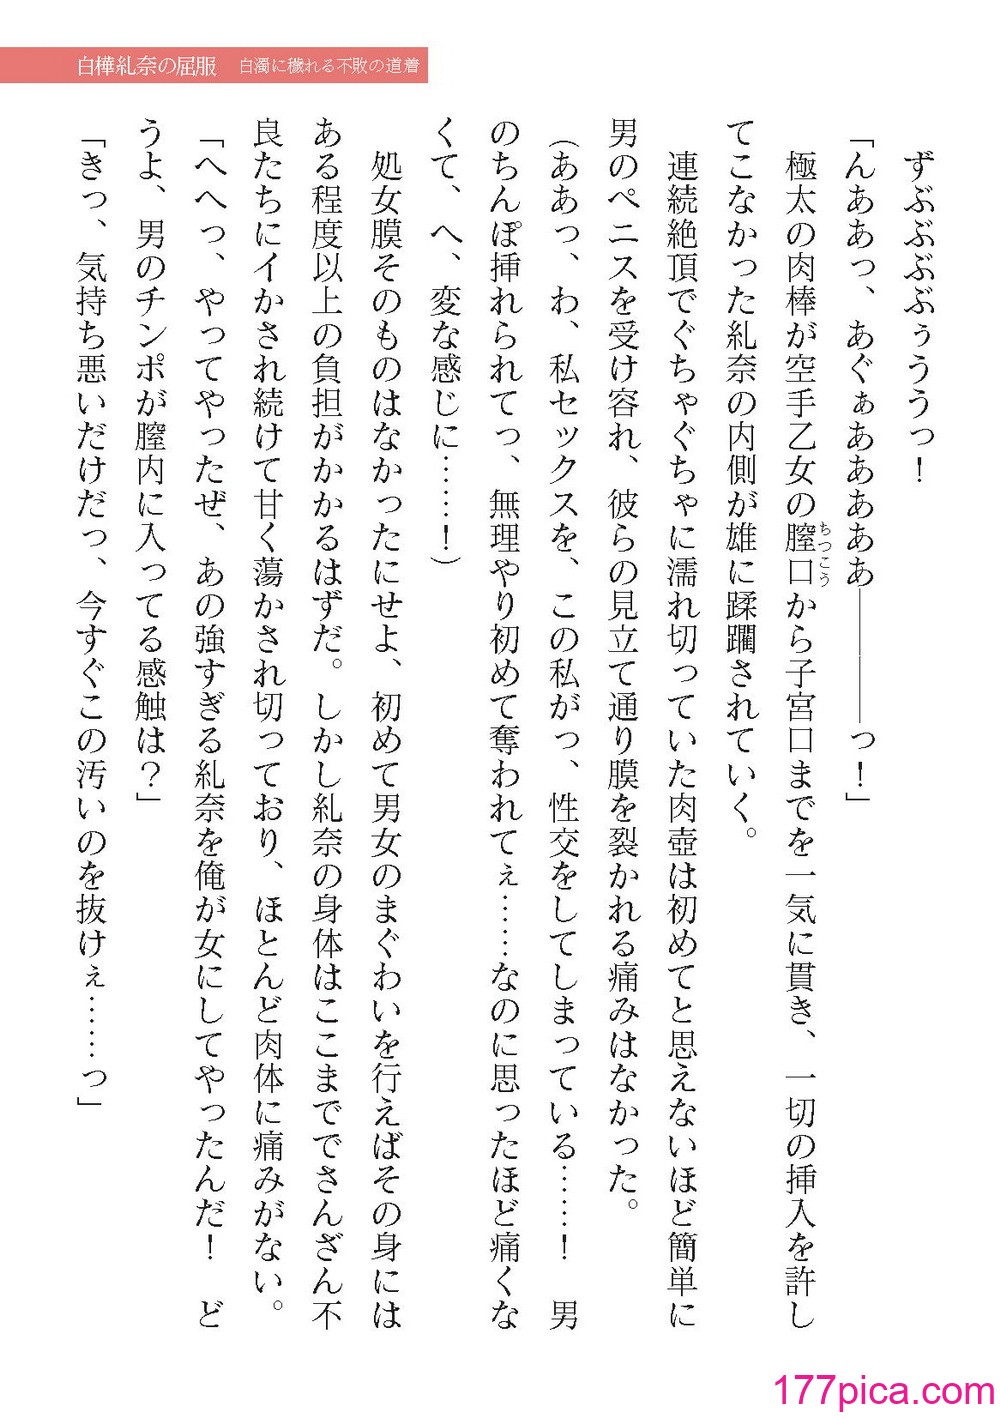 白樺糺奈の屈服　白濁に穢れる不敗の道着
ずぶぶぶぶぅううっ！
「んああっ、あぐぁああああぁ――――っ！」
極太の肉棒が空手乙女の膣口から子宮口までを一気に貫き、一切の挿入を許し
ちつこう
てこなかった糺奈の内側が雄に蹂躙されていく。
連続絶頂でぐちゃぐちゃに濡れ切っていた肉壺は初めてと思えないほど簡単に
男のペニスを受け容れ、彼らの見立て通り膜を裂かれる痛みはなかった。
（ああっ、わ、私セックスを、この私がっ、性交をしてしまっている……！　男
のちんぽ挿れられてっ、無理やり初めて奪われてぇ……なのに思ったほど痛くな
くて、へ、変な感じに……！）
処女膜そのものはなかったにせよ、初めて男女のまぐわいを行えばその身には
ある程度以上の負担がかかるはずだ。しかし糺奈の身体はここまでさんざん不
良たちにイかされ続けて甘く蕩かされ切っており、ほとんど肉体に痛みがない。
「へへっ、やってやったぜ、あの強すぎる糺奈を俺が女にしてやったんだ！　ど
うよ、男のチンポが膣内に入ってる感触は？」
「きっ、気持ち悪いだけだっ、今すぐこの汚いのを抜けぇ……っ」
177pica.com